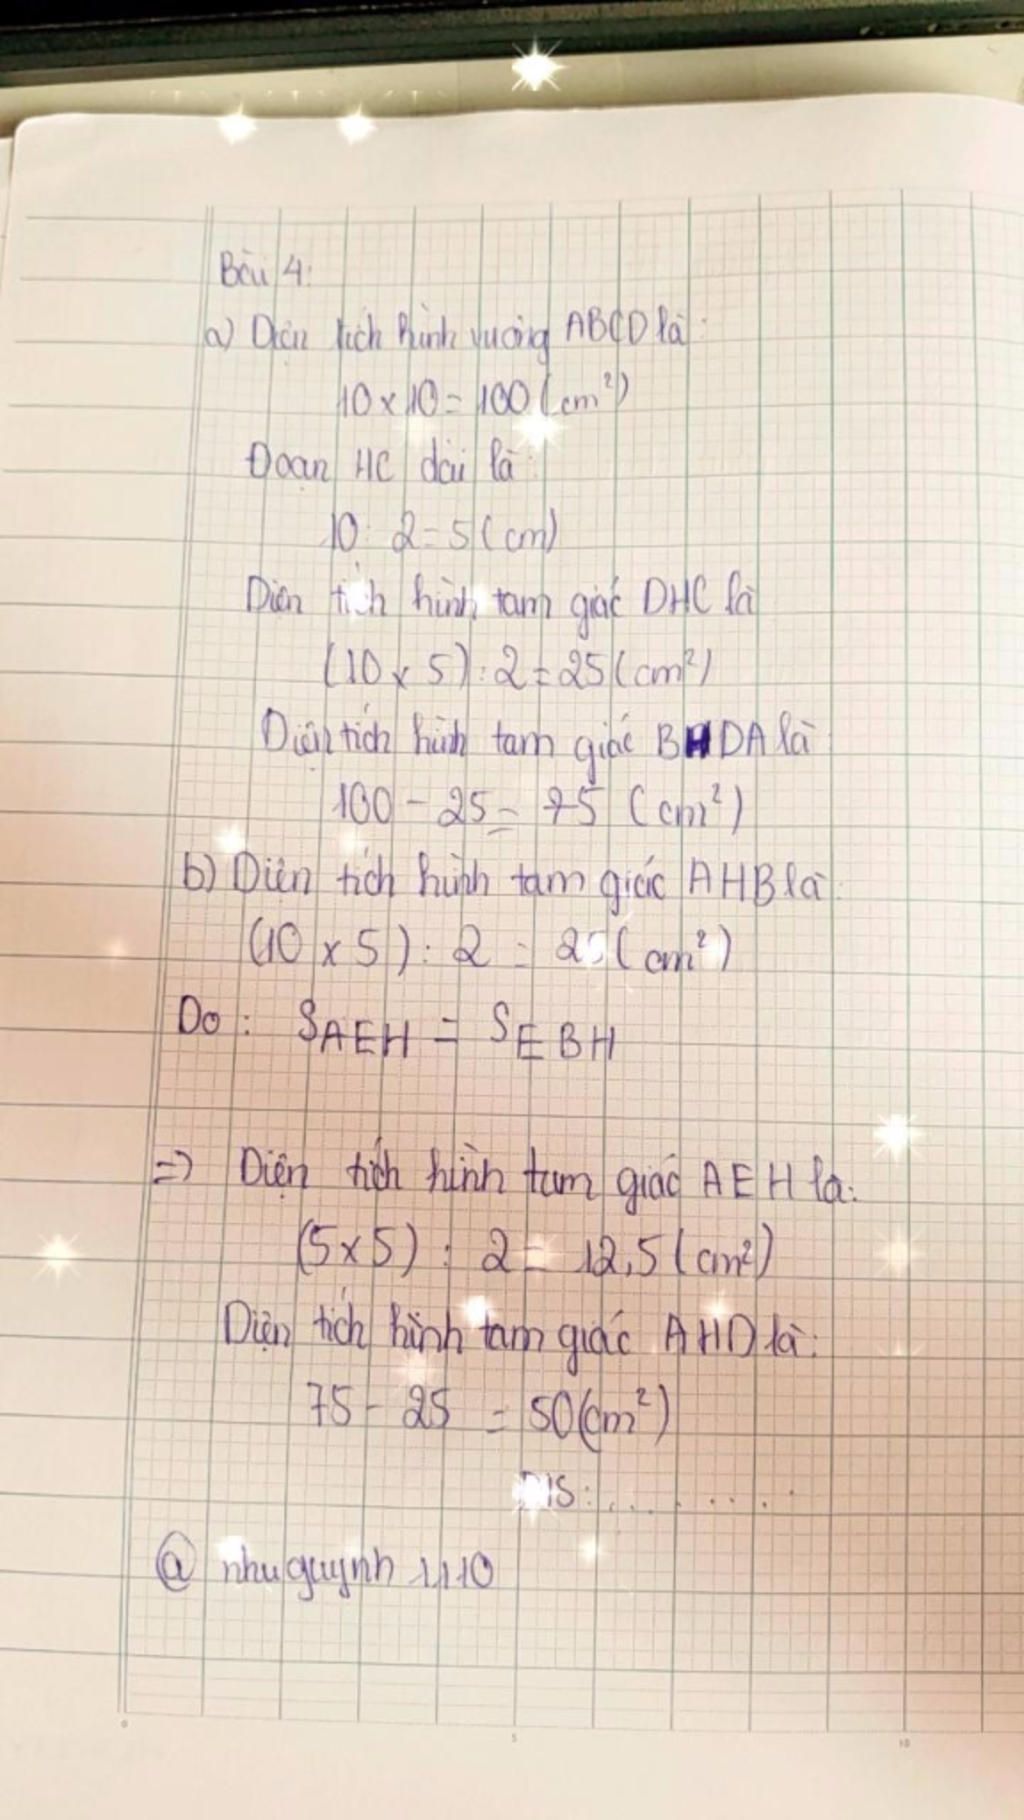 Bài 4:
a) Diện tích hình vuông ABCD là:
10 x 10 = 100 (cm²)
Đoạn HC dài là:
10 : 2 = 5 (cm)
Diện tích hình tam giác DHC là
(10 x 5) : 2 = 25 (cm²)
Diện tích hình tam giác BHDA là
100 - 25 = 75 (cm²)
b) Diện tích hình tam giác AHB là:
(10 x 5) : 2 = 25 (cm²)
Do : SAEH = SEBH
=> Diện tích hình tam giác AEH là:
(5x5) : 2 = 12,5 (cm²)
Diện tích hình tam giác AHD là:
75 - 25 = 50 (cm²)
Đ/S: . . . . . . .
@ nhuquynh 1110
0 5 10